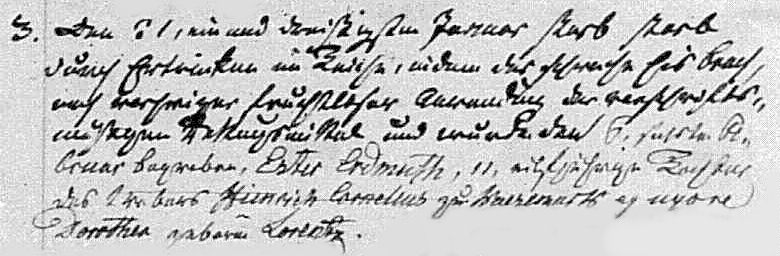 3. Den 31, ein und dreißigsten Januar starb starb
durch Ertrinken im Teiche, indem das schwache Eis brach,
nach vorheriger fruchtloser Anwendung der vorschrifts-
mäßigen Rettungsmittel und wurde den 6, sechsten Fe-
bruar begraben, Ester Erdmuth, 11, eilfjährige Tochter
des Webers Heinrich Cornelius zu ex uxore
Dorothea geborne Lorentz.